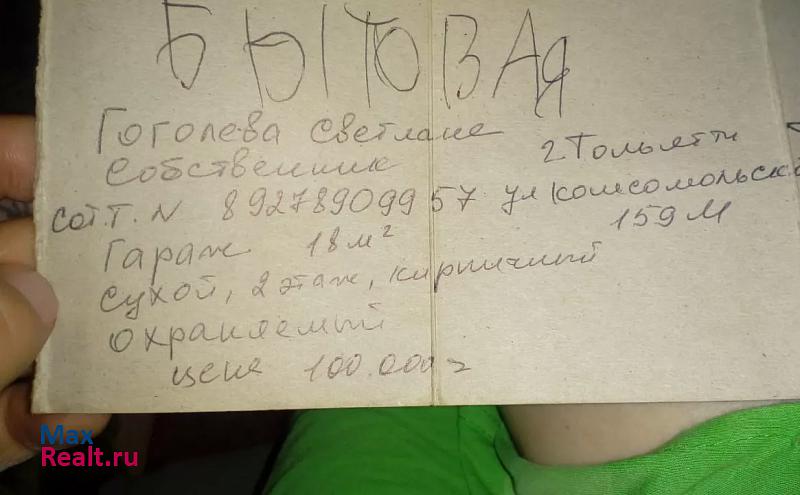 БЫТОВАЯ
Гоголева Светлана
Собственник
г Тольятти
сот.т. N 89278909957 ул Комсомольска
159М
Гараж 18м²
сухой, 2 этаж, кирпичный
охраняемый
цена 100.000
Max
Realt.ru